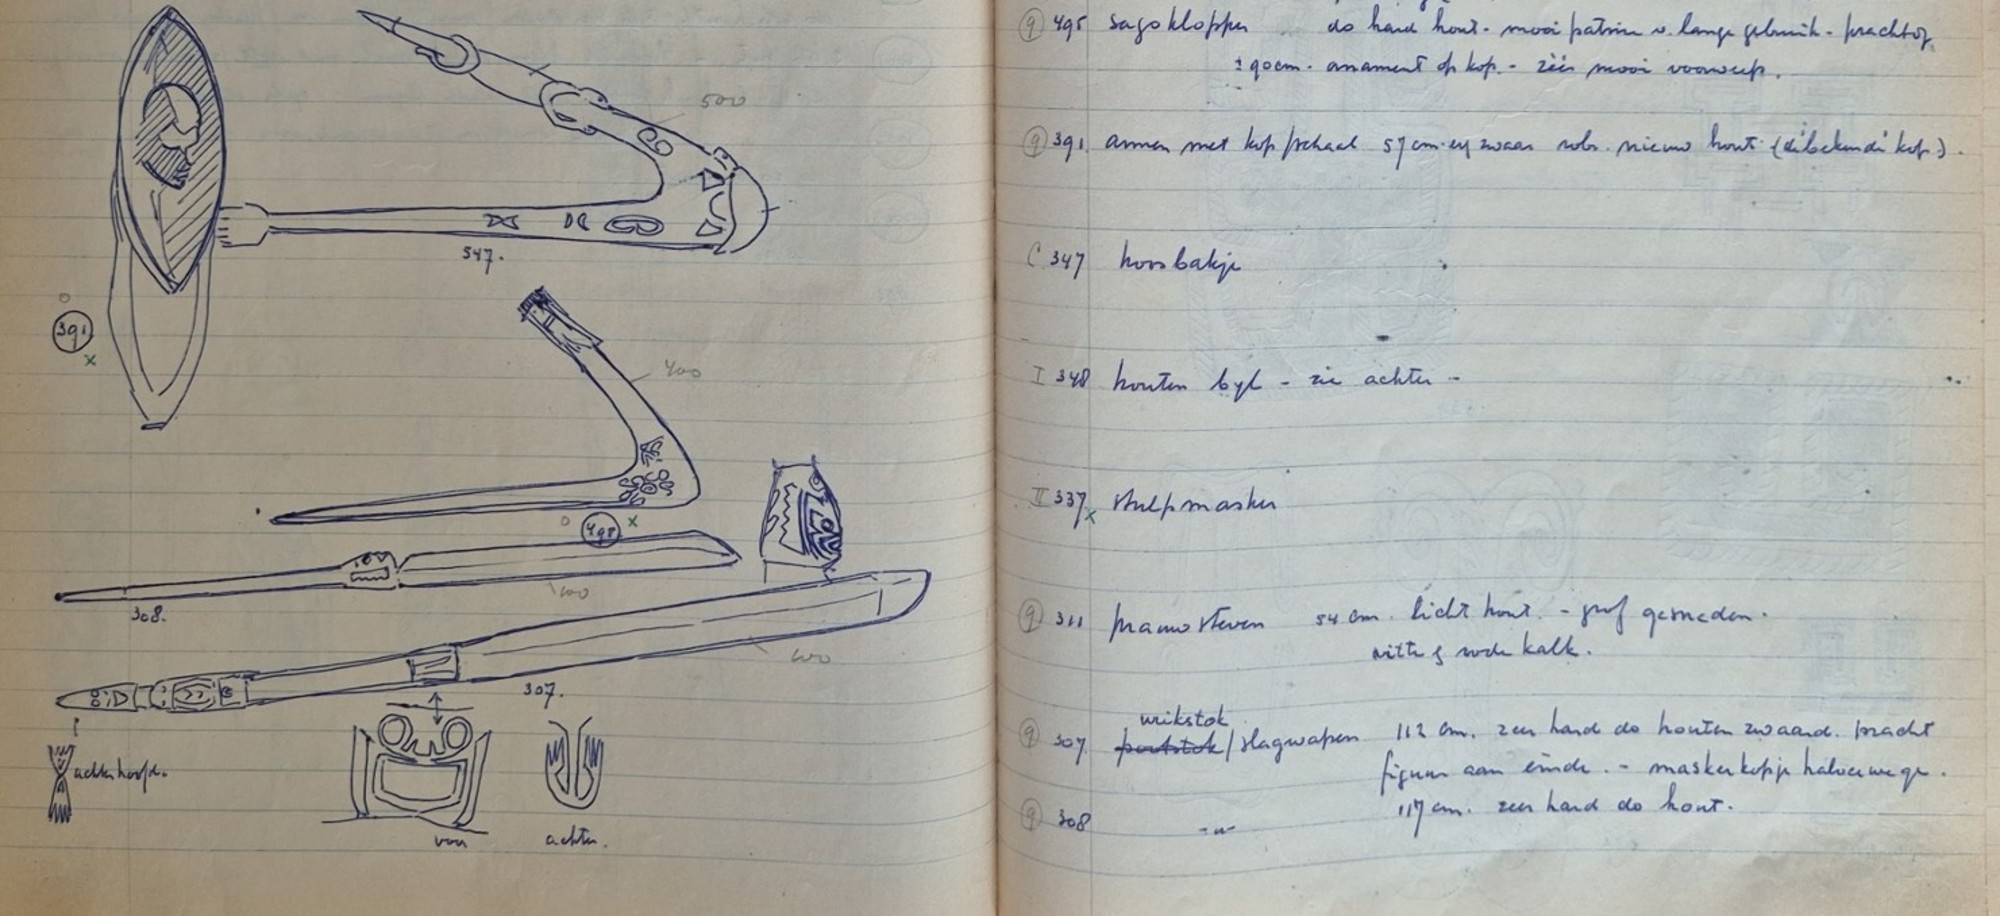 500
547.
391
x
400
495
x
308.
600
600
307.
achterhoofd.
voor
achter.
9 495 sagoklopper do hard hout - mooi patine v. lange gebruik - prachtig
± 90 cm. ornament op kop. - zéér mooi voorwerp.
9 391 armen met kop/schaal 57 cm. en zwaar nieuw hout
C 347 hoosbakje
I 348 houten byl - zie achter -
II 337 x stulpmasker
9 311 prauwsteven 54 cm. licht hout. - grof gesneden.
witte & rode kalk.
wrikstok
9 307 /slagwapen 112 cm. zeer hard do houten zwaard. pracht
figuur aan einde. - maskerkopje halverwege.
9 308 -"- 117 cm. zeer hard do hout.